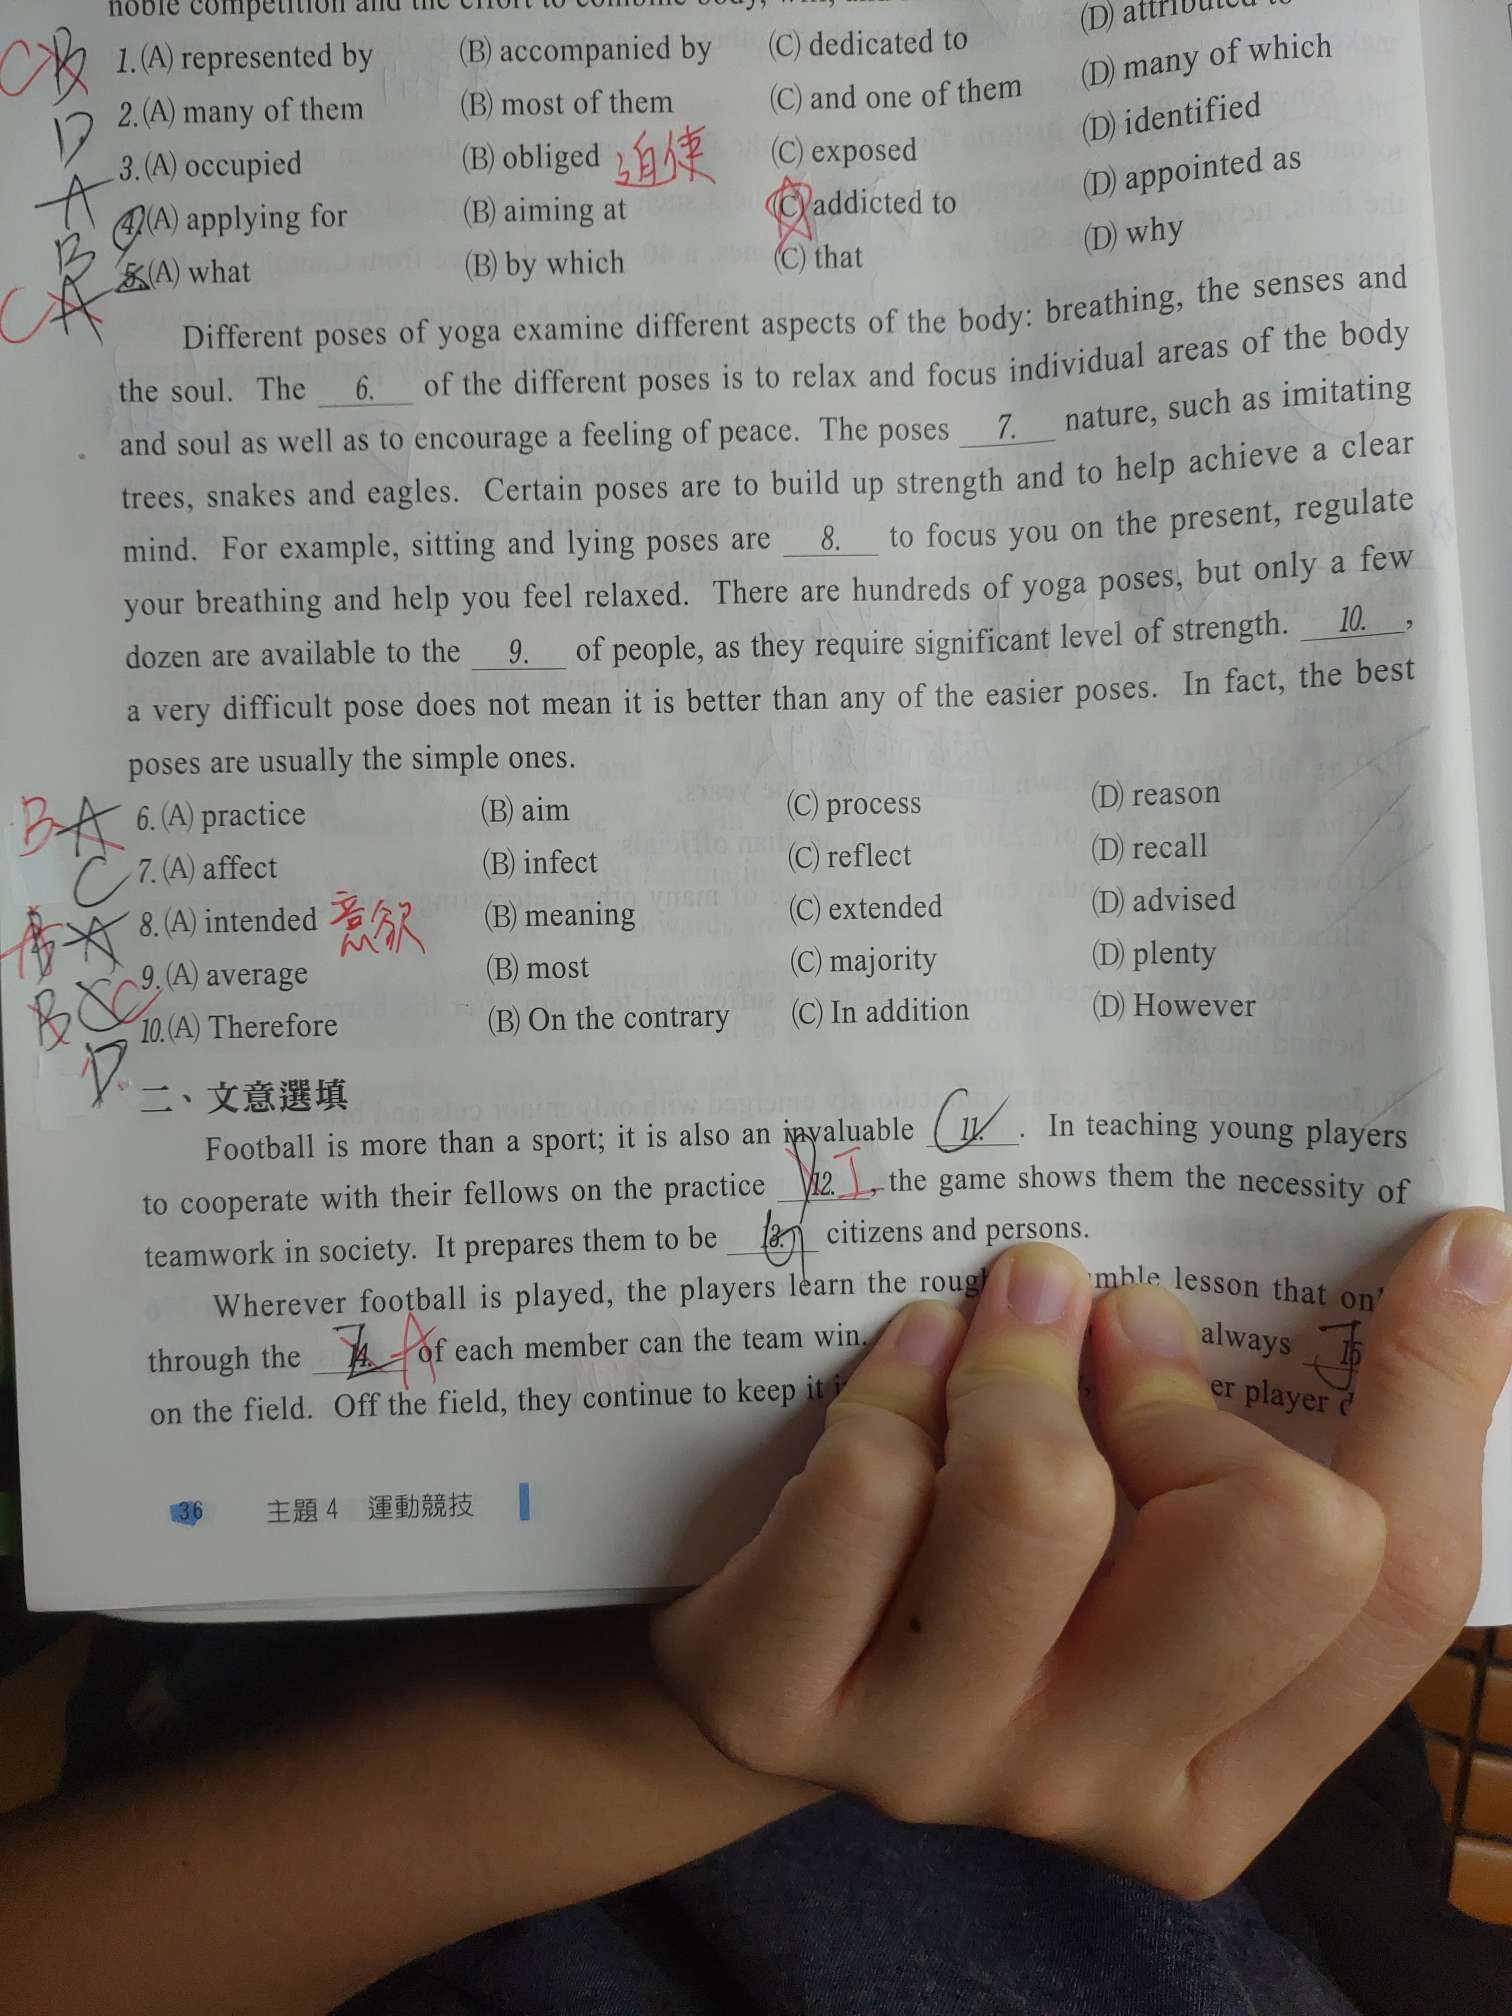 noble competition and the effort to combine body,
1.(A) represented by (B) accompanied by (C) dedicated to (D) attributed to
2.(A) many of them (B) most of them (C) and one of them (D) many of which
3.(A) occupied (B) obliged 迫使 (C) exposed (D) identified
4.(A) applying for (B) aiming at (C) addicted to (D) appointed as
5.(A) what (B) by which (C) that (D) why
CB
D
A
B
CA
Different poses of yoga examine different aspects of the body: breathing, the senses and
the soul. The 6. of the different poses is to relax and focus individual areas of the body
and soul as well as to encourage a feeling of peace. The poses 7. nature, such as imitating
trees, snakes and eagles. Certain poses are to build up strength and to help achieve a clear
mind. For example, sitting and lying poses are 8. to focus you on the present, regulate
your breathing and help you feel relaxed. There are hundreds of yoga poses, but only a few
dozen are available to the 9. of people, as they require significant level of strength. 10. ,
a very difficult pose does not mean it is better than any of the easier poses. In fact, the best
poses are usually the simple ones.
BA 6.(A) practice (B) aim (C) process (D) reason
C 7.(A) affect (B) infect (C) reflect (D) recall
A 8.(A) intended 意欲 (B) meaning (C) extended (D) advised
B C 9.(A) average (B) most (C) majority (D) plenty
D 10.(A) Therefore (B) On the contrary (C) In addition (D) However
二、文意選填
Football is more than a sport; it is also an invaluable 11. . In teaching young players
to cooperate with their fellows on the practice 12. I , the game shows them the necessity of
teamwork in society. It prepares them to be 13. citizens and persons.
Wherever football is played, the players learn the lesson that
through the 14. A of each member can the team win. always 15
on the field. Off the field, they continue to keep it player
36 主題 4 運動競技